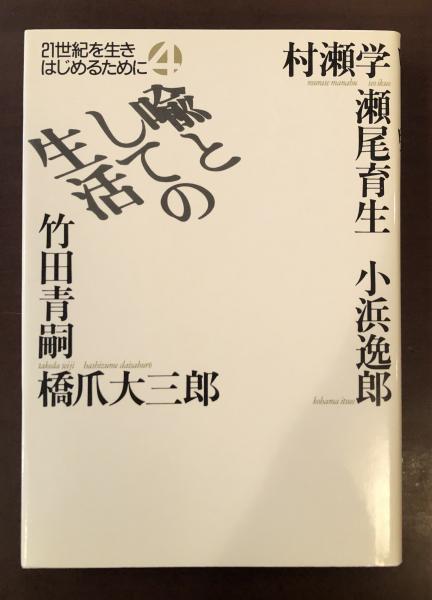 21世紀を生き
はじめるために
4
喩と
しての
生活
村瀬学
murase manabu
seo ikuo
瀬尾育生
小浜逸郎
kohama itsuo
竹田青嗣
takeda seiji
hashizume daisaburō
橋爪大三郎